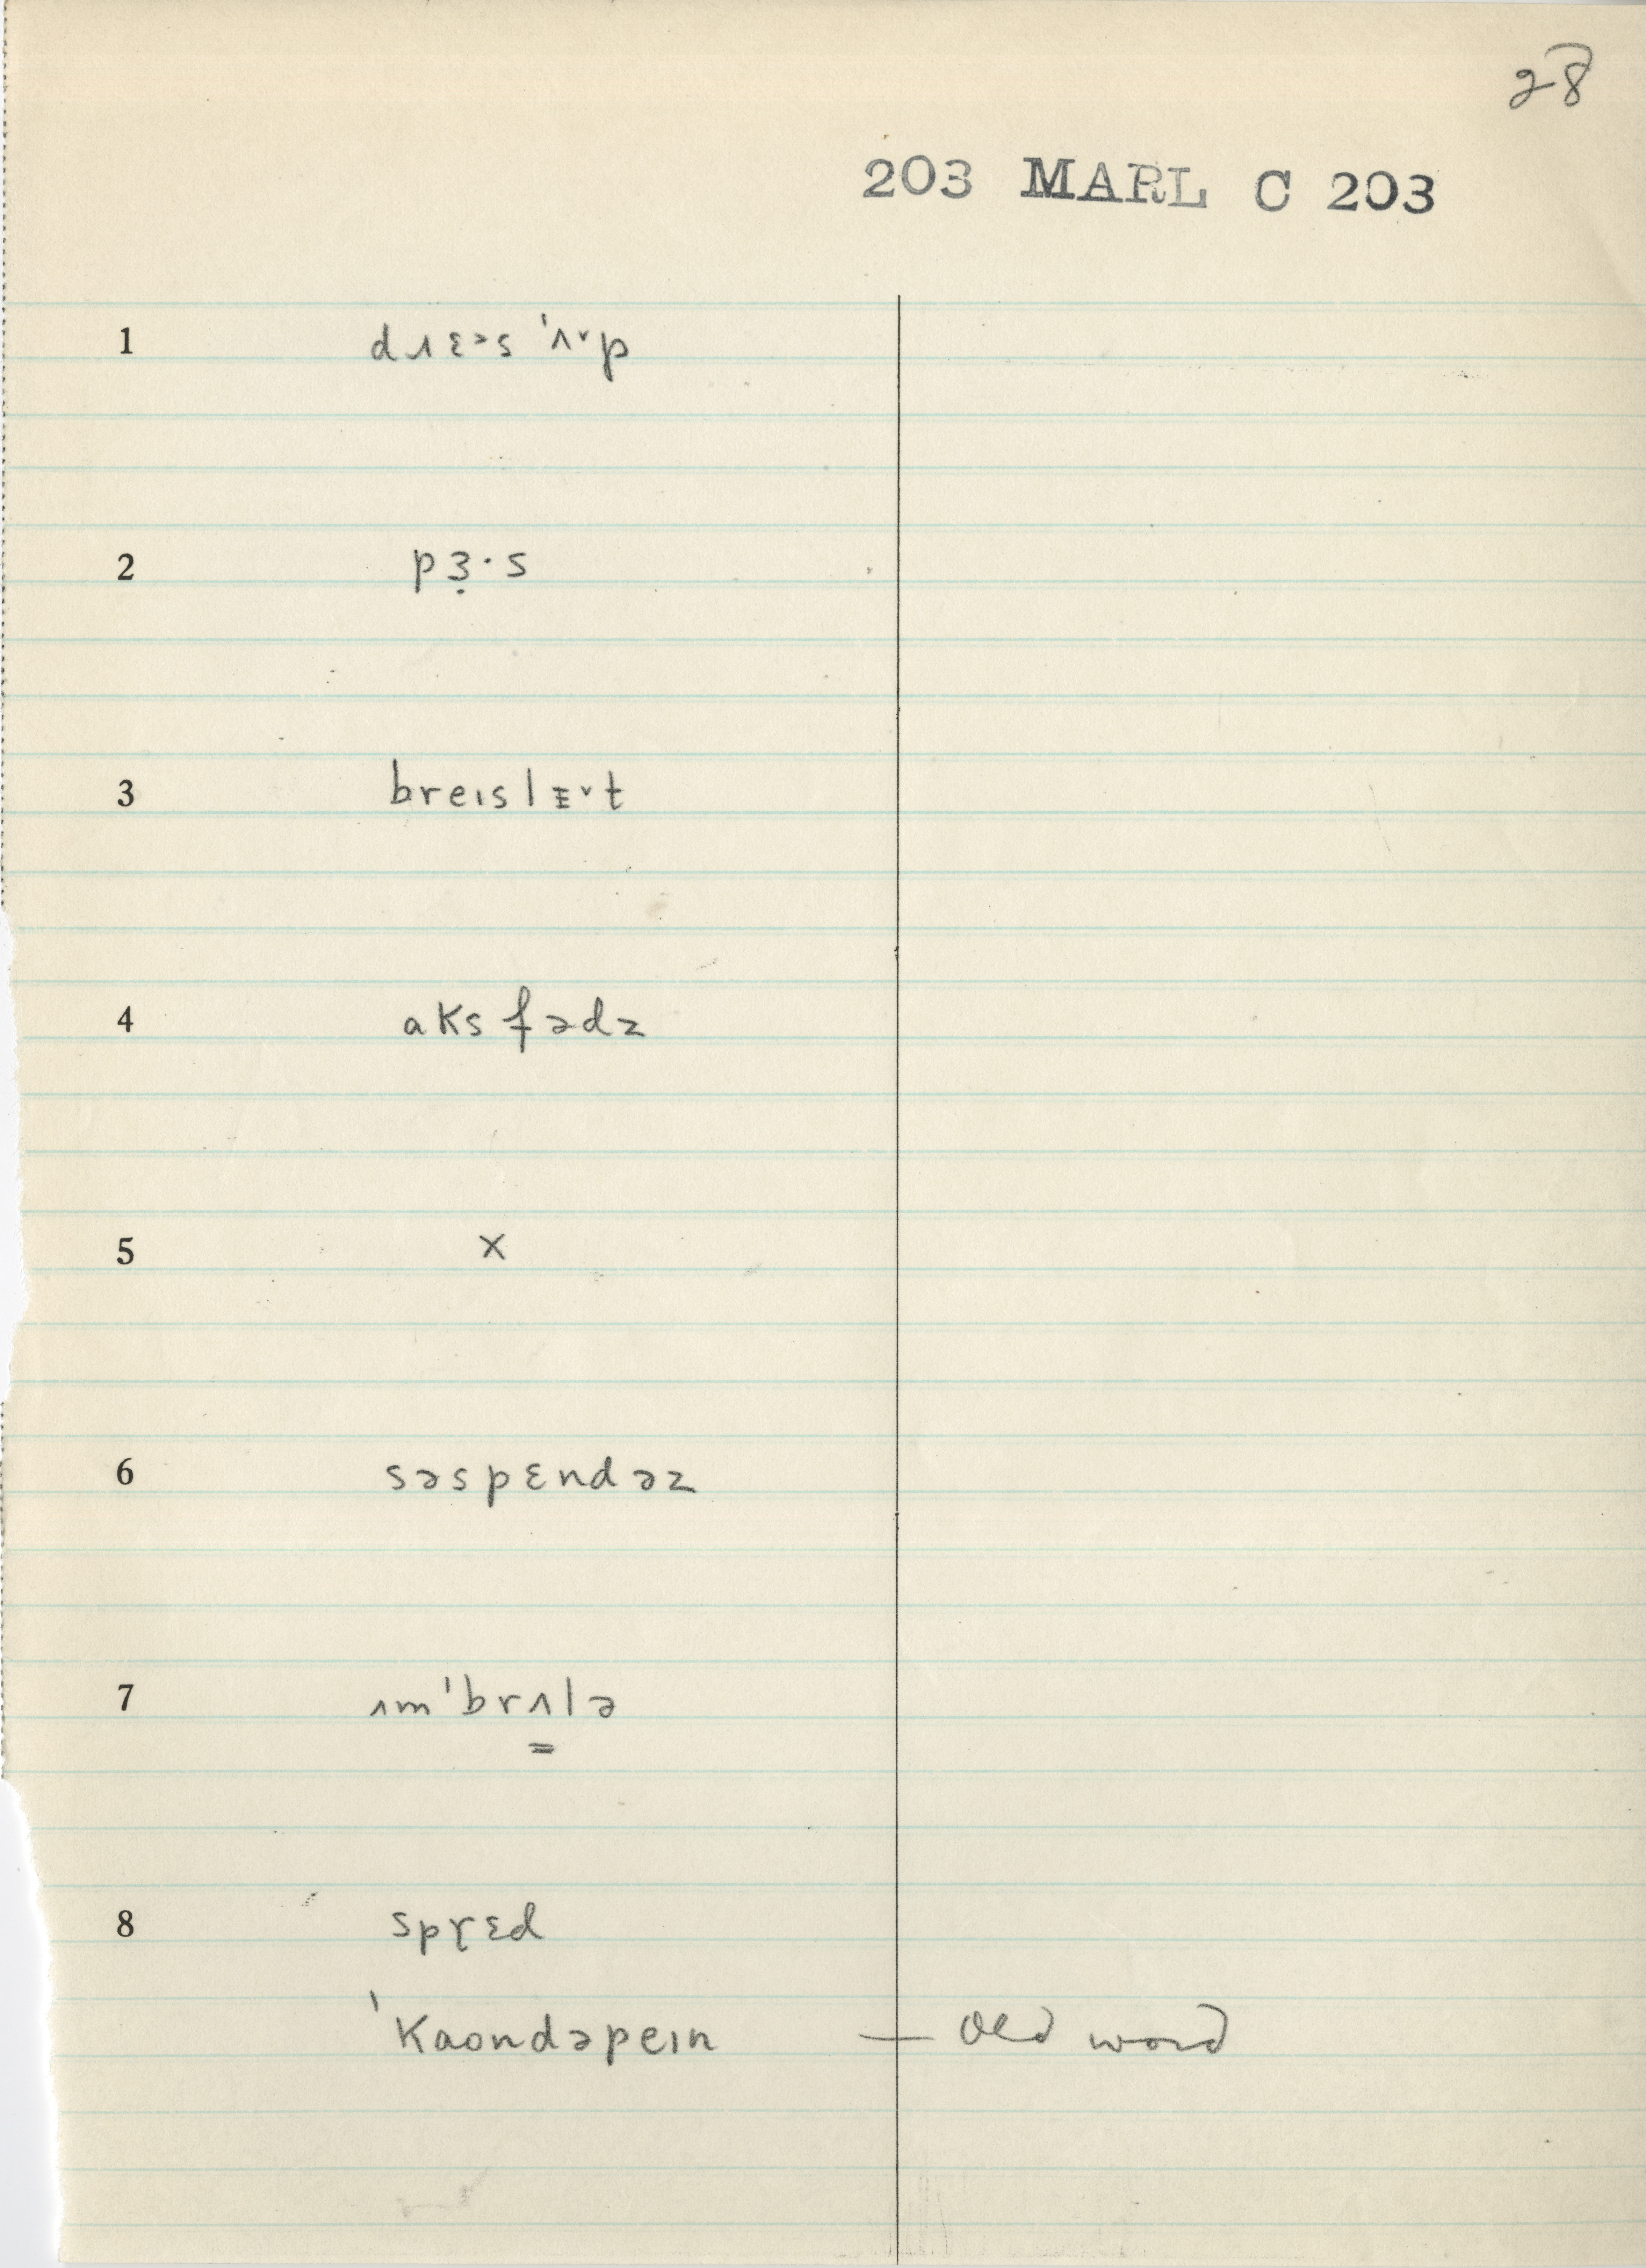 28
203 MARL C 203
1 dɹɛᵊs 'ʌ˅p
2 pɜ̣·s
3 breɪslɛ˅t
4 aksfədz
5 ×
6 səspɛndəz
7 ɪm'brʌ͇lə
8 sprɛd
'kaondəpeɪn — old word